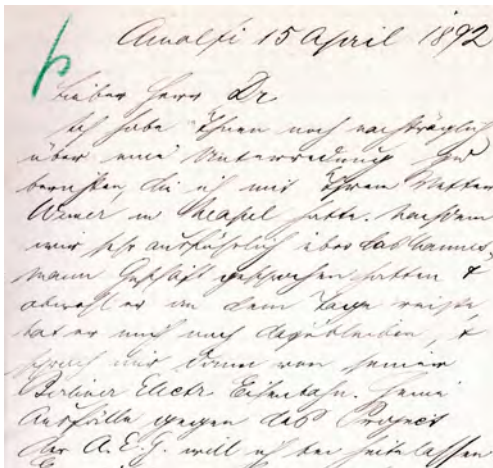 Amalfi 15 April 1892
Lieber Herr Dr
ich habe Ihnen noch nachträglich
über eine Unterredung zu
berichten, die ich mit Ihrem Vetter
Werner in Neapel hatte. Nachdem
wir sehr ausführlich über das Mannes-
mann Geschäft gesprochen hatten &
obwohl er an dem Tage reiste,
bat er mich noch dazubleiben, &
sprach mir dann von seiner
Berliner Electr. Eisenbahn. Seine
Ausfälle gegen das Project
der A.E.G. will ich bei seite lassen